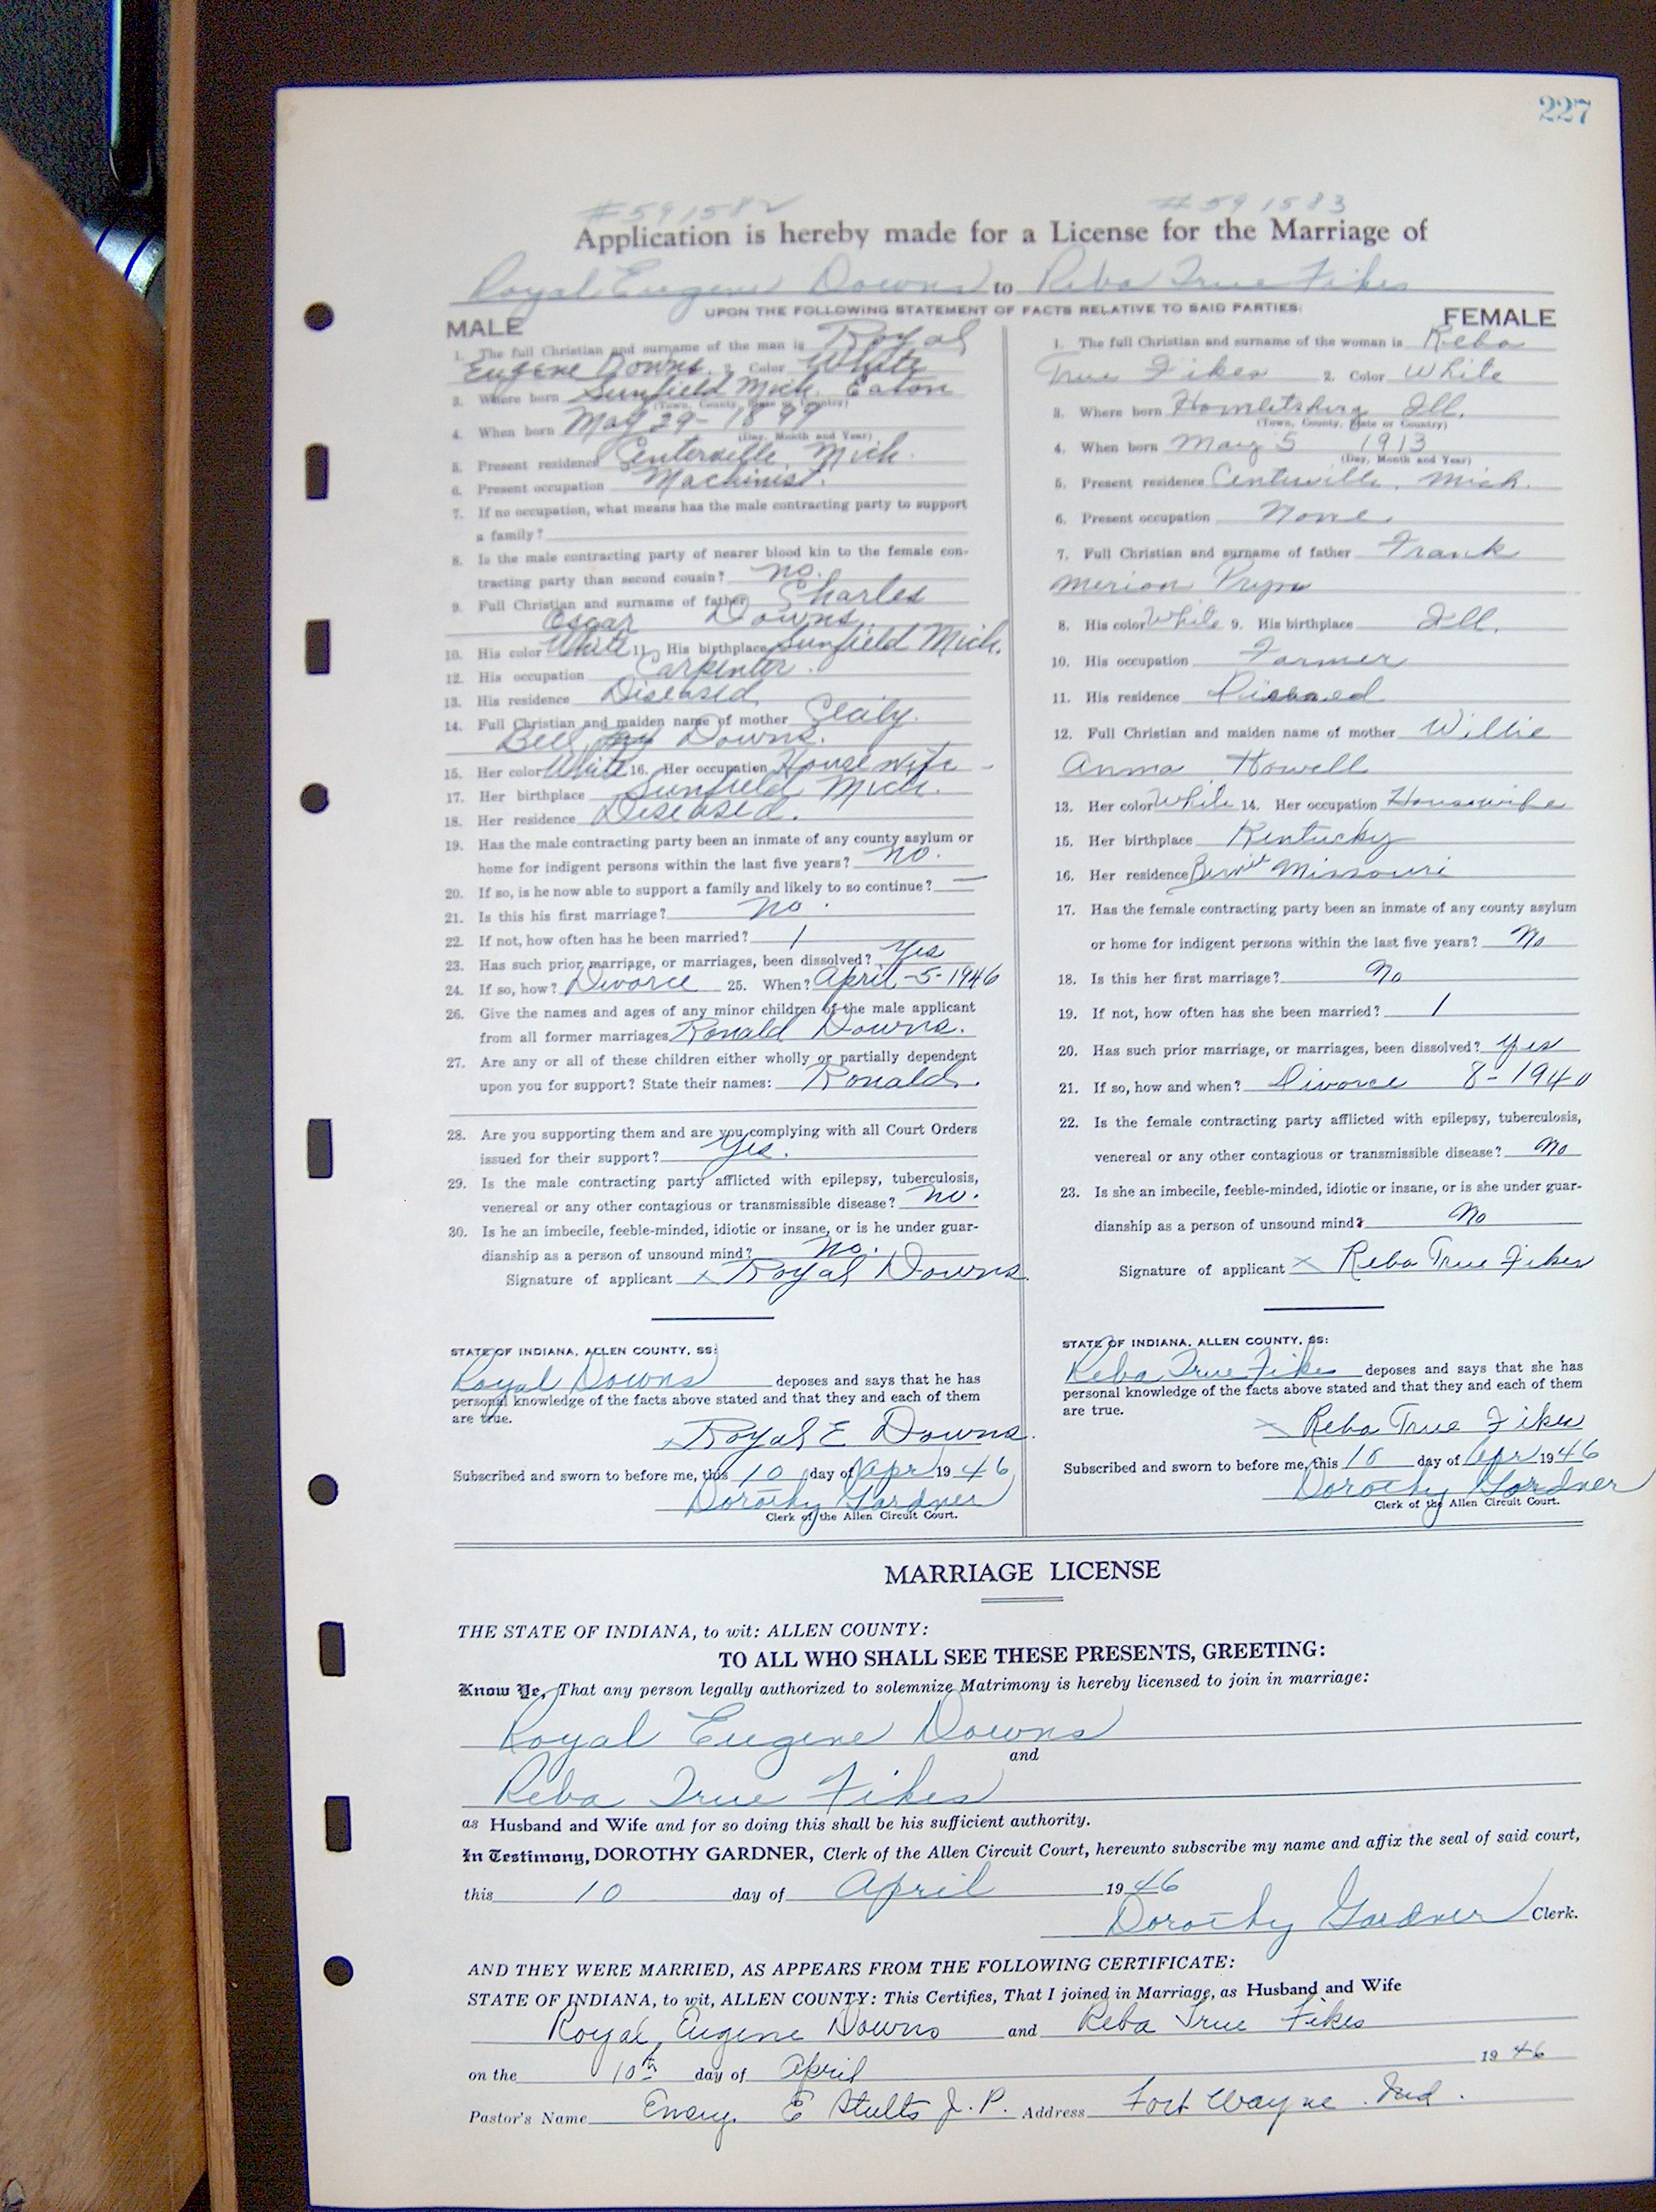 227
#591582 #591583
Application is hereby made for a License for the Marriage of
Royal Eugene Downs to Reba True Fikes
UPON THE FOLLOWING STATEMENT OF FACTS RELATIVE TO SAID PARTIES:
MALE
1. The full Christian and surname of the man is Royal
Eugene Downs. 2. Color White
3. Where born Sunfield Mich. Eaton
(Town, County, State or Country)
4. When born May 29-1899
(Day, Month and Year)
5. Present residence Centerville, Mich.
6. Present occupation Machinist.
7. If no occupation, what means has the male contracting party to support
a family?
8. Is the male contracting party of nearer blood kin to the female con-
tracting party than second cousin? no.
9. Full Christian and surname of father Charles
Oscar Downs.
10. His color White 11. His birthplace Sunfield Mich.
12. His occupation Carpenter.
13. His residence Diseased
14. Full Christian and maiden name of mother
Downs.
15. Her color White 16. Her occupation House wife -
17. Her birthplace Sunfield Mich.
18. Her residence Diseased.
19. Has the male contracting party been an inmate of any county asylum or
home for indigent persons within the last five years? no.
20. If so, is he now able to support a family and likely to so continue? —
21. Is this his first marriage? no.
22. If not, how often has he been married? 1
23. Has such prior marriage, or marriages, been dissolved? Yes
24. If so, how? Divorce 25. When? April-5-1946
26. Give the names and ages of any minor children of the male applicant
from all former marriages Ronald Downs.
27. Are any or all of these children either wholly or partially dependent
upon you for support? State their names: Ronald.
28. Are you supporting them and are you complying with all Court Orders
issued for their support? Yes.
29. Is the male contracting party afflicted with epilepsy, tuberculosis,
venereal or any other contagious or transmissible disease? no.
30. Is he an imbecile, feeble-minded, idiotic or insane, or is he under guar-
dianship as a person of unsound mind? no.
Signature of applicant x Royal Downs.
STATE OF INDIANA, ALLEN COUNTY, SS:
Royal Downs deposes and says that he has
personal knowledge of the facts above stated and that they and each of them
are true.
x Royal E Downs.
Subscribed and sworn to before me, this 10 day of Apr 1946
Dorothy Gardner
Clerk of the Allen Circuit Court.
FEMALE
1. The full Christian and surname of the woman is Reba
True Fikes 2. Color White
3. Where born Ill.
(Town, County, State or Country)
4. When born May 5 1913
(Day, Month and Year)
5. Present residence Centerville, Mich.
6. Present occupation None
7. Full Christian and surname of father Frank
Merion
8. His color White 9. His birthplace Ill.
10. His occupation Farmer
11. His residence Diseased
12. Full Christian and maiden name of mother Willie
Anna Howell
13. Her color White 14. Her occupation Housewife
15. Her birthplace Kentucky
16. Her residence Missouri
17. Has the female contracting party been an inmate of any county asylum
or home for indigent persons within the last five years? No
18. Is this her first marriage? No
19. If not, how often has she been married? 1
20. Has such prior marriage, or marriages, been dissolved? Yes
21. If so, how and when? Divorce 8-1940
22. Is the female contracting party afflicted with epilepsy, tuberculosis,
venereal or any other contagious or transmissible disease? No
23. Is she an imbecile, feeble-minded, idiotic or insane, or is she under guar-
dianship as a person of unsound mind? No
Signature of applicant x Reba True Fikes
STATE OF INDIANA, ALLEN COUNTY, SS:
Reba True Fikes deposes and says that she has
personal knowledge of the facts above stated and that they and each of them
are true.
x Reba True Fikes
Subscribed and sworn to before me, this 10 day of Apr 1946
Dorothy Gardner
Clerk of the Allen Circuit Court.
MARRIAGE LICENSE
THE STATE OF INDIANA, to wit: ALLEN COUNTY:
TO ALL WHO SHALL SEE THESE PRESENTS, GREETING:
Know Ye, That any person legally authorized to solemnize Matrimony is hereby licensed to join in marriage:
Royal Eugene Downs
and
Reba True Fikes
as Husband and Wife and for so doing this shall be his sufficient authority.
In Testimony, DOROTHY GARDNER, Clerk of the Allen Circuit Court, hereunto subscribe my name and affix the seal of said court,
this 10 day of April 1946
Dorothy Gardner Clerk.
AND THEY WERE MARRIED, AS APPEARS FROM THE FOLLOWING CERTIFICATE:
STATE OF INDIANA, to wit, ALLEN COUNTY: This Certifies, That I joined in Marriage, as Husband and Wife
Royal Eugene Downs and Reba True Fikes
on the 10th day of April 1946
Pastor's Name Emery E Stults J.P. Address Fort Wayne Ind.